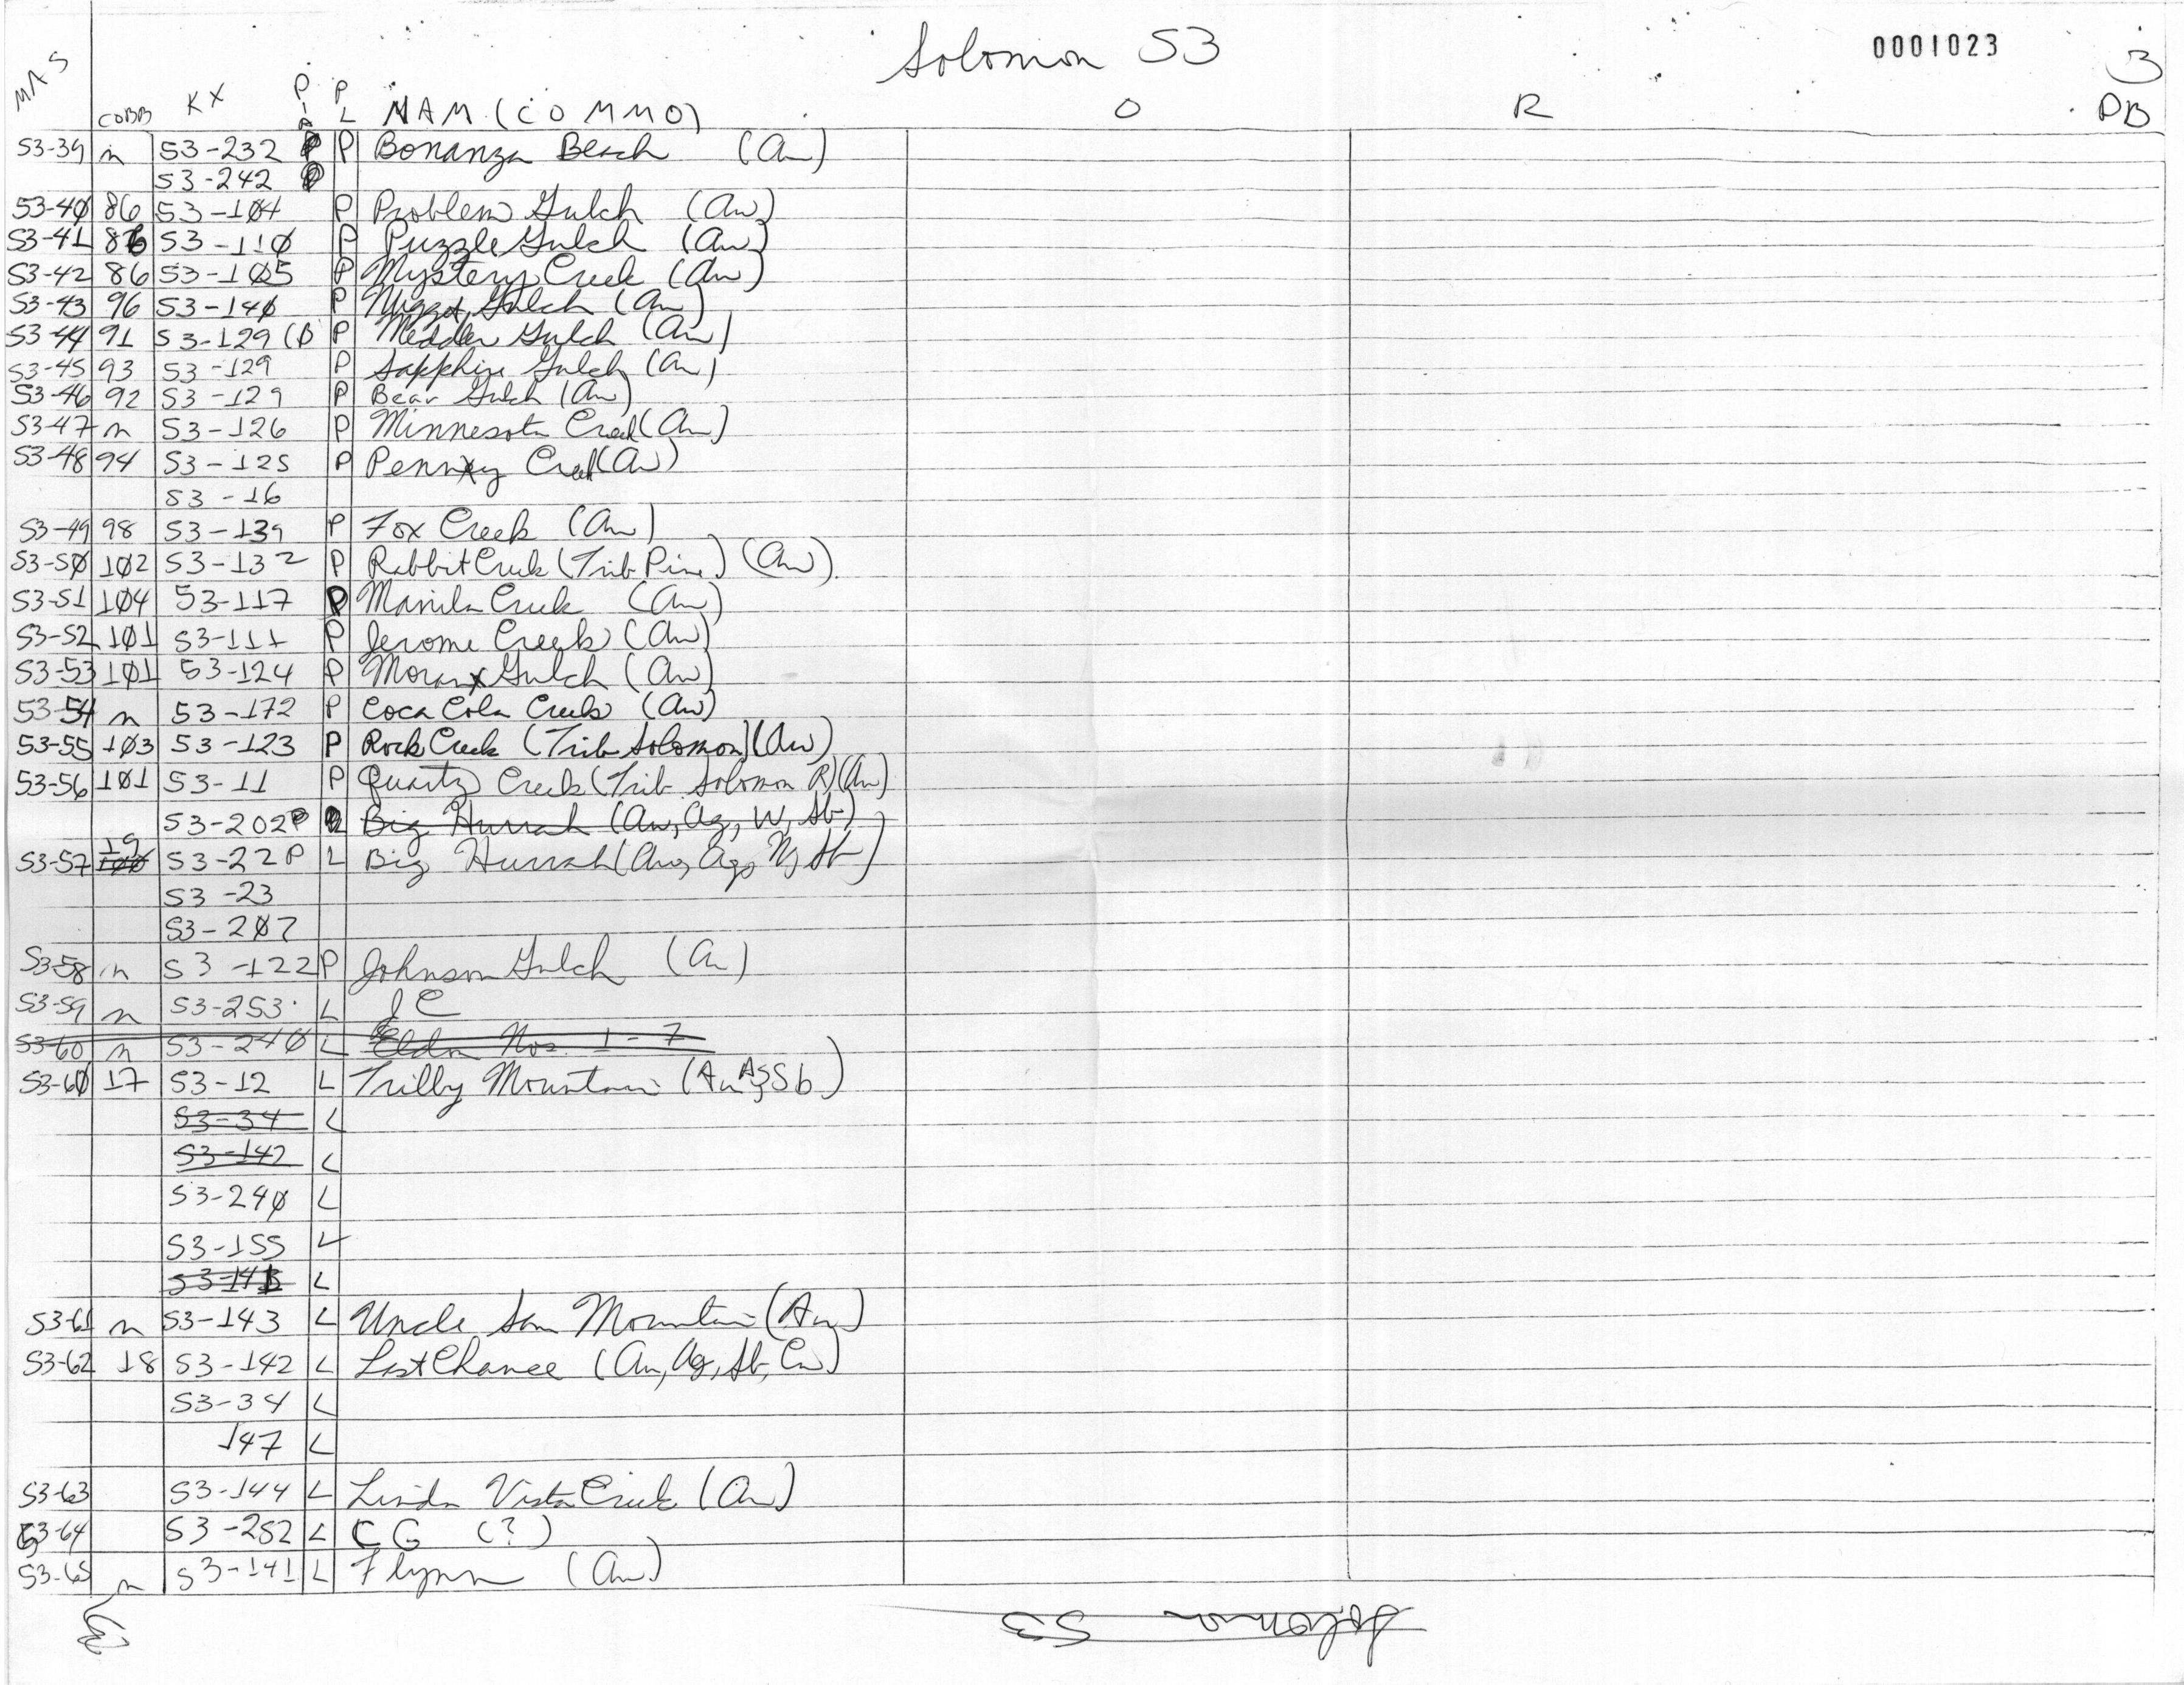 Solomon 53
0001023
3
MAS COBB KX P L A P L NAM (COMMO) O R PB
53-39 n 53-232 P P Bonanza Beach (Au)
53-242 P
53-40 86 53-104 P Problem Gulch (Au)
53-41 86 53-110 P Puzzle Gulch (Au)
53-42 86 53-105 P Mystery Creek (Au)
53-43 96 53-140 P Gulch (Au)
53-44 91 53-129 (P P Medder Gulch (Au)
53-45 93 53-129 P Sapphire Gulch (Au)
53-46 92 53-129 P Bear Gulch (Au)
53-47 n 53-126 P Minnesota Creek (Au)
53-48 94 53-125 P Penny Creek (Au)
53-16
53-49 98 53-139 P Fox Creek (Au)
53-50 102 53-132 P Rabbit Creek (Trib Pine) (Au)
53-51 104 53-117 P Manila Creek (Au)
53-52 101 53-111 P Jerome Creek (Au)
53-53 101 53-124 P Moran Gulch (Au)
53-54 n 53-172 P Coca Cola Creek (Au)
53-55 103 53-123 P Rock Creek (Trib Solomon) (Au)
53-56 101 53-11 P Quartz Creek (Trib Solomon R) (Au)
53-202 P L Big Hurrah (Au, Ag, W, Sb)
53-57 19 100 53-22 P L Big Hurrah (Au, Ag, W, Sb)
53-23
53-207
53-58 n 53-122 P Johnson Gulch (Au)
53-59 n 53-253 L JC
53-60 n 53-240 L Eldon Nos. 1-7
53-60 17 53-12 L Trilby Mountain (Au, As, Sb)
53-34 L
53-142 L
53-240 L
53-155 L
53-141 L
53-61 n 53-143 L Uncle Sam Mountain (Au)
53-62 18 53-142 L Last Chance (Au, Ag, Sb, Cu)
53-34 L
147 L
53-63 53-144 L Linda Vista Creek (Au)
53-64 53-252 L CG (?)
53-65 n 53-141 L Flynn (Au)
Solomon 53